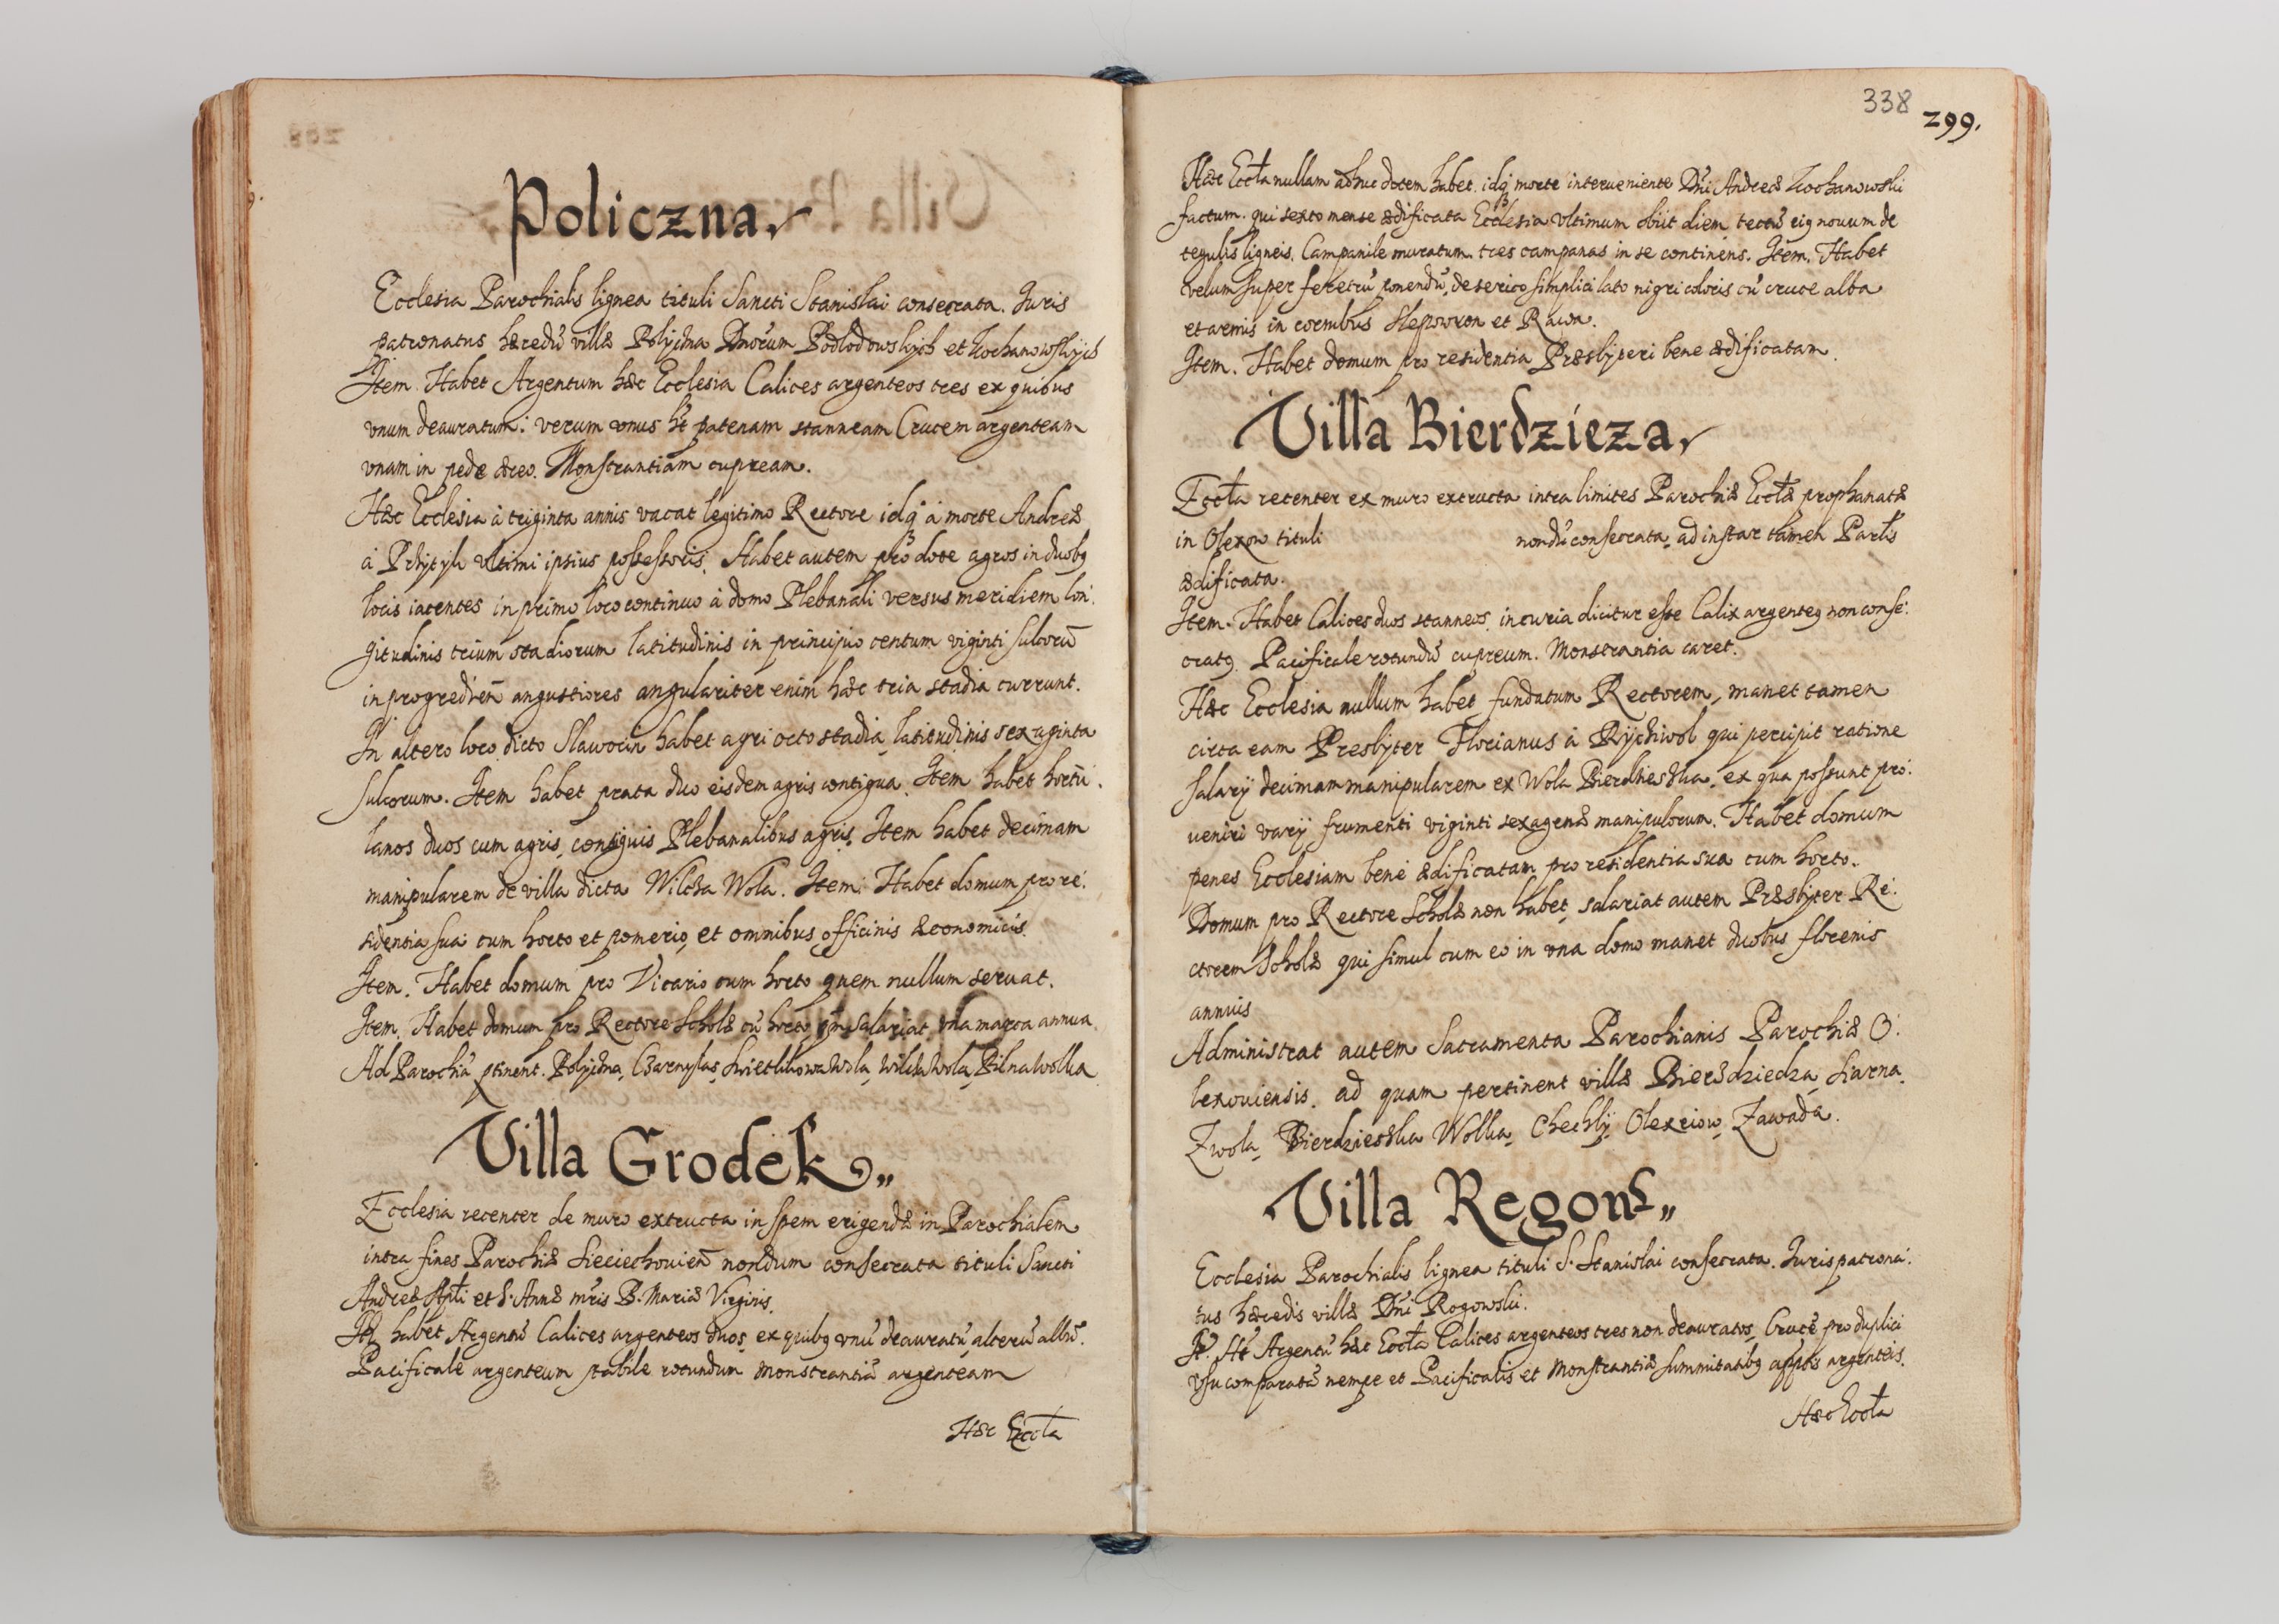 Policzna
Ecclesia Parochialis lignea tituli Sancti Stanislai consecrata. Juris
patronatus hæredũ villæ Polyczna Dnorum Podlodowskych et Kochanowskych
Item Habet Argentum hæc Ecclesia Calices argenteos tres ex quibus
vnum deauratum: verum vnus ht patenam stanneam Crucem argenteam
vnam in pede æreo. Monstrantiam cupream.
Hæc Ecclesia à triginta annis vacat legitimo Rectore idq3 a morte Andreæ
à Przytyk vltimi ipsius possessoris. Habet autem pro dote agros in duobq
locis iacentes in primo loco continuo à domo Plebanali versus meridiem lon:
gitudinis trium stadiorum latitudinis in principio centum viginti sulcorũ
in progredien̄ angustiores angulariter enim hæc tria stadia currunt.
In altero loco dicto Slawocin habet agri octo stadia latitudinis sexaginta
sulcorum. Item habet prata duo eisdem agris contigua. Item habet hortu:
lanos duos cum agris, contiguis Plebanalibus agris. Item habet decimam
manipularem de villa dicta Wilcza Wola. Item: Habet domum pro re:
sidentia sua cum horto et pomerio et omnibus officinis æconomicis.
Item. Habet domum pro Vicario cum horto quem nullum seruat.
Item. Habet domum pro Rectore Scholæ cũ horto qm̃ salariat vna marca annua.
Ad Parochiã ptinent. Polyczna, Czarnylas, Swietlikowa Wola, Wilcza Wola, Pilna Wolka.
Villa Grodek„
Ecclesia recenter de muro extructa in spem erigendæ in Parochialem
intra fines Parochiæ Sieciechouien̄ nondum consecrata tituli Sancti
Andreæ Apli et S. Annæ mris B. Mariæ Virginis.
habet Argentũ Calices argenteos duos, ex quibq vnũ deauratũ, alterũ albũ.
Pacificale argenteum stabile rotundum Monstrantiã argenteam
Hæc Eccta
338
299.
Hæc Eccta nullam adhuc dotem habet. idq3 morte interueniente Dni Andreæ Kochanowski
factum. qui sexto mense ædificata Ecclesia vltimum obiit diem, tectũ eiq nouum de
tegulis ligneis. Campanile muratum tres campanas in se continens. Item. Habet
velum super feretrũ ponendũ, de serico simplici lato nigri coloris cũ cruce alba
et armis in cornubus Slepowron et Rawa.
Item. Habet domum pro residentia Præsbyteri bene ædificatam.
Villa Bierdzieza
Eccta recenter ex muro extructa intra limites Parochiæ Ecctæ prophanatæ
in Olexow tituli nondũ consecrata, ad instar tamen Partis
ædificata.
Item. Habet Calices duos stanneos, in curia dicitur esse Calix argenteq non conse:
cratq. Pacificale rotundũ cupreum. Monstrantia caret.
Hæc Ecclesia nullum habet fundatum Rectorem, manet tamen
circa eam Presbyter Florianus à Rychiwol qui percipit ratione
salarij decimam manipularem ex Wola Bierdzieska, ex qua possunt pro:
ueniri varij frumenti viginti sexagenæ manipulorum. Habet domum
penes Ecclesiam bene ædificatam pro residentia sua cum horto.
Domum pro Rectore Scholæ non habet, salariat autem Præsbyter Re:
ctorem Scholæ qui simul cum eo in vna domo manet duobus florenis
annuis
Administrat autem Sacramenta Parochianis Parochiæ O:
lexouiensis. ad quam pertinent villæ Bierzdziedza, Siarna,
Zwola, Bierdzieska Wolka, Chechly, Olexiow, Zawada.
Villa Regow„
Ecclesia Parochialis lignea tituli S. Stanislai consecrata. Juris patrona:
tus hæredis villæ Dni Rogowski.
It. Ht Argentũ hæc Eccta Calices argenteos tres non deauratos, Crucẽ pro duplici
vsu comparatã nempe et Pacificalis et Monstrantiæ summitatibq apptis argenteis.
Hæc Eccta